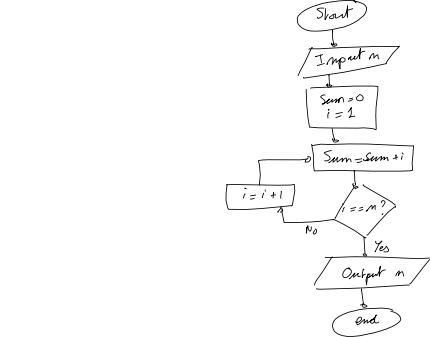 Start
Input n
Sum=0
i=1
Sum=Sum+i
i=i+1
i==n?
No
Yes
Output n
end